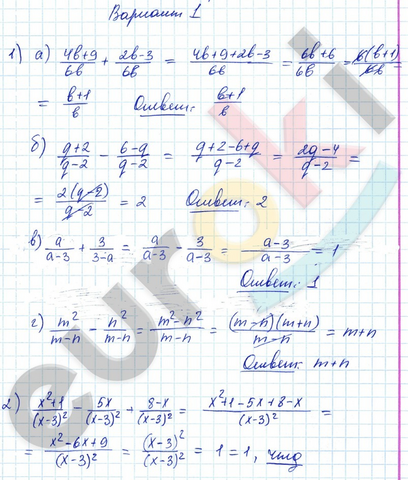 Вариант 1
1) а) (4b+9)/(6b) + (2b-3)/(6b) = (4b+9+2b-3)/(6b) = (6b+6)/(6b) = (6(b+1))/(6b) =
= (b+1)/b Ответ: (b+1)/b
б) (q+2)/(q-2) - (6-q)/(q-2) = (q+2-6+q)/(q-2) = (2q-4)/(q-2) =
= (2(q-2))/(q-2) = 2 Ответ: 2
в) a/(a-3) + 3/(3-a) = a/(a-3) - 3/(a-3) = (a-3)/(a-3) = 1
Ответ: 1
г) m²/(m-n) - n²/(m-n) = (m²-n²)/(m-n) = ((m-n)(m+n))/(m-n) = m+n
Ответ: m+n
2) (x²+1)/(x-3)² - 5x/(x-3)² + (8-x)/(x-3)² = (x²+1-5x+8-x)/(x-3)² =
= (x²-6x+9)/(x-3)² = (x-3)²/(x-3)² = 1 = 1, чтд
euroki